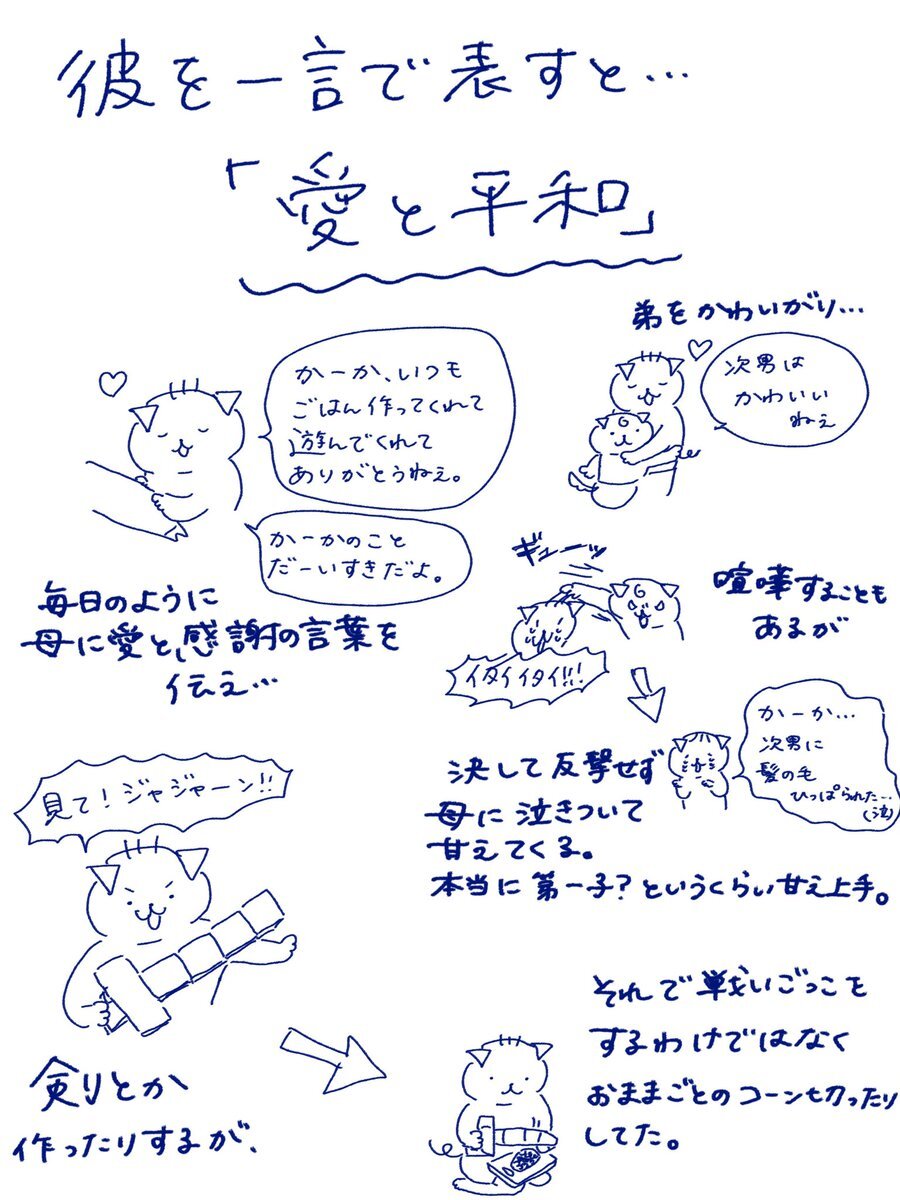 彼を一言で表すと…
「愛と平和」
かーか、いつも
ごはん作ってくれて
遊んでくれて
ありがとうねぇ。
かーかのこと
だーいすきだよ。
毎日のように
母に愛と感謝の言葉を
伝え…
弟をかわいがり…
次男は
かわいい
ねぇ
ギューッ
イタイイタイ!!!
喧嘩することも
あるが
かーか…
次男に
髪の毛
ひっぱられた…
(泣)
決して反撃せず
母に泣きついて
甘えてくる。
本当に第一子?というくらい甘え上手。
見て!ジャジャーン!!
剣とか
作ったりするが、
それで戦いごっこを
するわけではなく
おままごとのコーンも切ったり
してた。